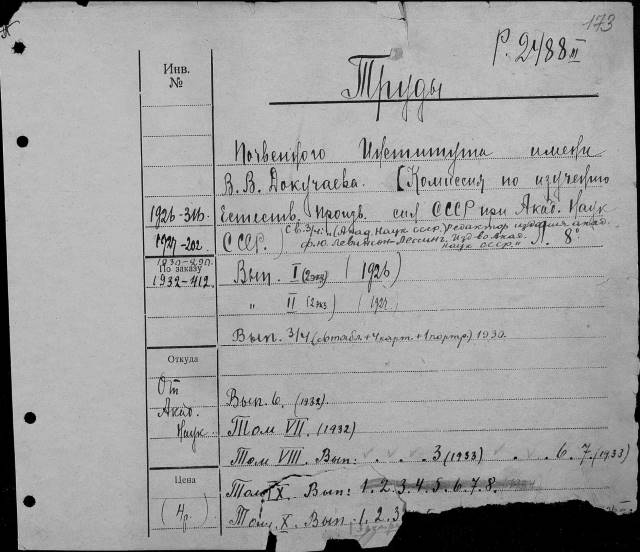 173
Р. 2488 III
Инв.
№
Труды
Почвенного Института имени
В. В. Докучаева. [Комиссия по изучению
1926-316. Естеств. Произв. сил СССР при Акад. Наук
1927-202. СССР.) С в. 3/4: "(Акад. Наук СССР.) редактор издания акад.
Ф. Ю. Левинсон-Лессинг. Изд-во Акад. Наук СССР." Л. 8°
1930-290.
По заказу
1932-412.
Вып. I (2 экз) (1926)
" II (2 экз) (1927)
Вып. 3/4 ( табл. + 4 карт. + 1 портр) 1930.
Откуда
От
Акад.
Наук
Вып. 6. (1932).
Том VII. (1932)
Том VIII. Вып: . . . 3 (1933) . . . 6. 7. (1933)
Цена
(4р.)
Том IX. Вып: 1. 2. 3. 4. 5. 6. 7. 8.
Том X. Вып. 1. 2. 3